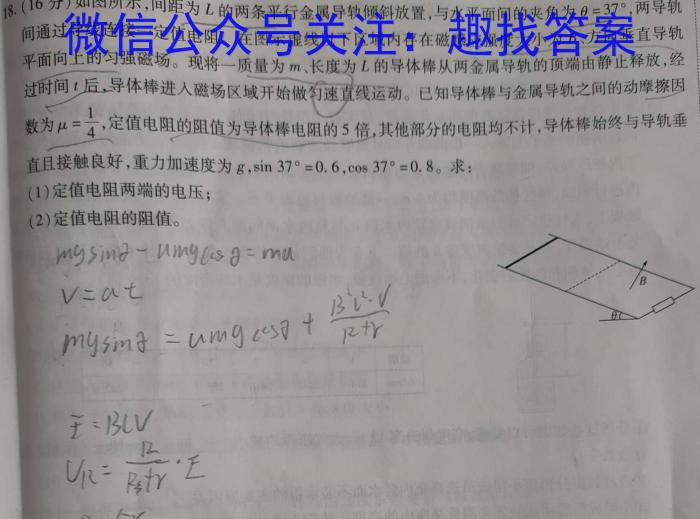 18. (16 分) 如图所示,间距为 L 的两条平行金属导轨倾斜放置,与水平面间的夹角为 θ=37°,两导轨
间通过
定值电阻
微信公众号关注:趣找答案
平面向上的匀强磁场。现将一质量为 m、长度为 L 的导体棒从两金属导轨的顶端由静止释放,经
过时间 t 后,导体棒进入磁场区域开始做匀速直线运动。已知导体棒与金属导轨之间的动摩擦因
数为 μ=1/4,定值电阻的阻值为导体棒电阻的 5 倍,其他部分的电阻均不计,导体棒始终与导轨垂
直且接触良好,重力加速度为 g,sin 37°=0.6,cos 37°=0.8。求:
(1)定值电阻两端的电压;
(2)定值电阻的阻值。
mgsinθ - umgcosθ = ma
v = at
mgsinθ = umgcosθ + B²L²·V/R+r
E = BLV
U_R = R/R+r · E
B
θ